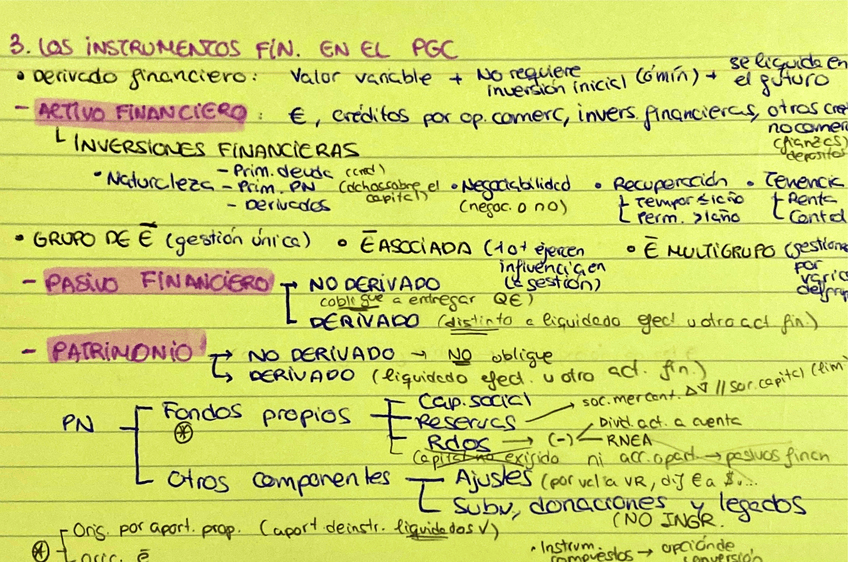 3. LOS INSTRUMENTOS FIN. EN EL PGC
• Derivado financiero: Valor variable + No requiere inversión inicial (ó mín) + se liquida en el futuro
- ACTIVO FINANCIERO: €, créditos por op. comerc, invers. financieras, otros
no comer
(fianzas)
depósitos
INVERSIONES FINANCIERAS
• Naturaleza - Prim. deuda
- Prim. PN (dchos sobre el capital)
- Derivados
• Negociabilidad
(negoc. o no)
• Recuperación
Tempor ≤ 1año
Perm. > 1año
• Tenencia
Renta
Control
• GRUPO DE Ē (gestión única) • Ē ASOCIADA (1 o + ejercen influencia en la gestión) • Ē MULTIGRUPO
por
- PASIVO FINANCIERO → NO DERIVADO
(obligue a entregar Q€)
DERIVADO (distinto a liquidado efect u otro act. fin.)
- PATRIMONIO → NO DERIVADO → NO obligue
→ DERIVADO (liquidado efect. u otro act. fin.)
PN
Fondos propios
Cap. social
Reservas → soc. mercant. // soc. capital
Rdos → (-) Divid. act. a cuenta
RNEA
Capital no exigido ni acc. apart. → pasivos financ
Otros componentes
Ajustes (por vel a VR, dif € a $...
Subv, donaciones y legados
(NO INGR.
Orig. por aport. prop. (aport de instr. liquidados V)
Oric. ē
• Instrum. compuestos → opción de conversión